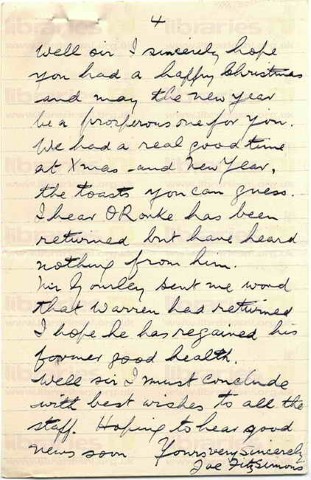 4
Well sir I sincerely hope
you had a happy Christmas
and may the new year
be a prosperous one for you.
We had a real good time
at Xmas and New Year,
the toasts you can guess.
I hear O'Rorke has been
returned but have heard
nothing from him.
Mr Gourley sent me word
that Warren had returned
I hope he has regained his
former good health.
Well sir I must conclude
with best wishes to all the
staff. Hoping to hear good
news soon Yours very sincerely
Joe FitzSimons